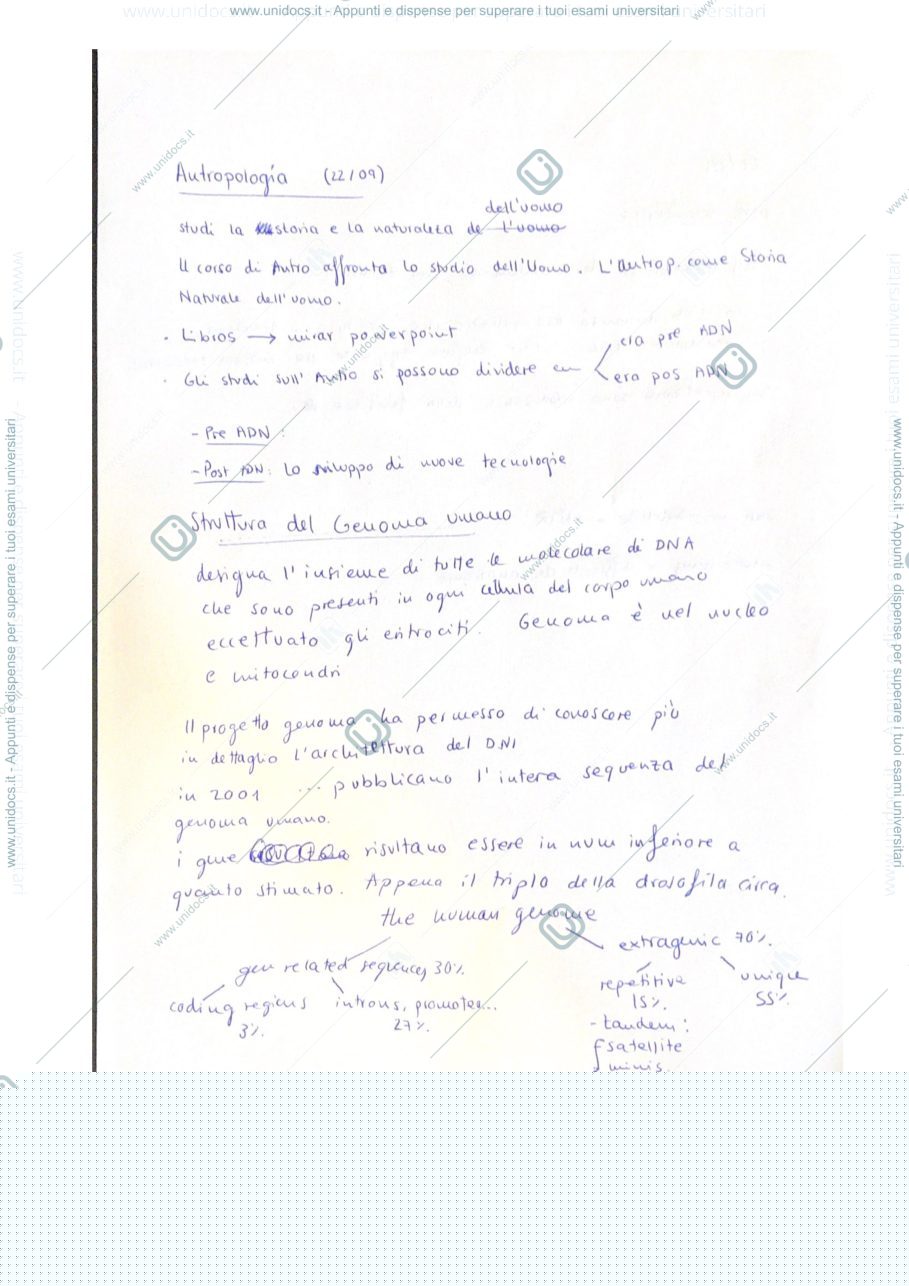 www.unidocs.it - Appunti e dispense per superare i tuoi esami universitari
Autropologia (22/09)
dell'uomo
studi la storia e la naturaleza de l'uomo
Il corso di Antro affronta lo studio dell'Uomo. L'antrop. come Storia
Naturale dell'uomo.
· Libros → mirar powerpoint
· Gli studi sull' Antro si possono dividere en
era pre ADN
era pos ADN
- Pre ADN:
- Post ADN: Lo sviluppo di nuove tecnologie
Struttura del Genoma umano
designa l'insieme di tutte le molecolare di DNA
che sono presenti in ogni cellula del corpo umano
eccettuato gli eritrociti. Genoma è nel nucleo
e mitocondri
Il progetto genoma ha permesso di conoscere più
in dettaglio l'architettura del DNI
in 2001 ... pubblicano l'intera sequenza del
genoma umano.
i gene risultano essere in num inferiore a
quanto stimato. Appena il triplo della drosofila circa.
the human genome
extragenic 70%.
gen related sequences 30%.
repetitive
15%.
unique
55%.
coding regions
3%.
introns, promoter...
27%.
- tandem:
satellite
minis.
www.unidocs.it - Appunti e dispense per superare i tuoi esami universitari
www.unidocs.it - Appunti e dispense per superare i tuoi esami universitari